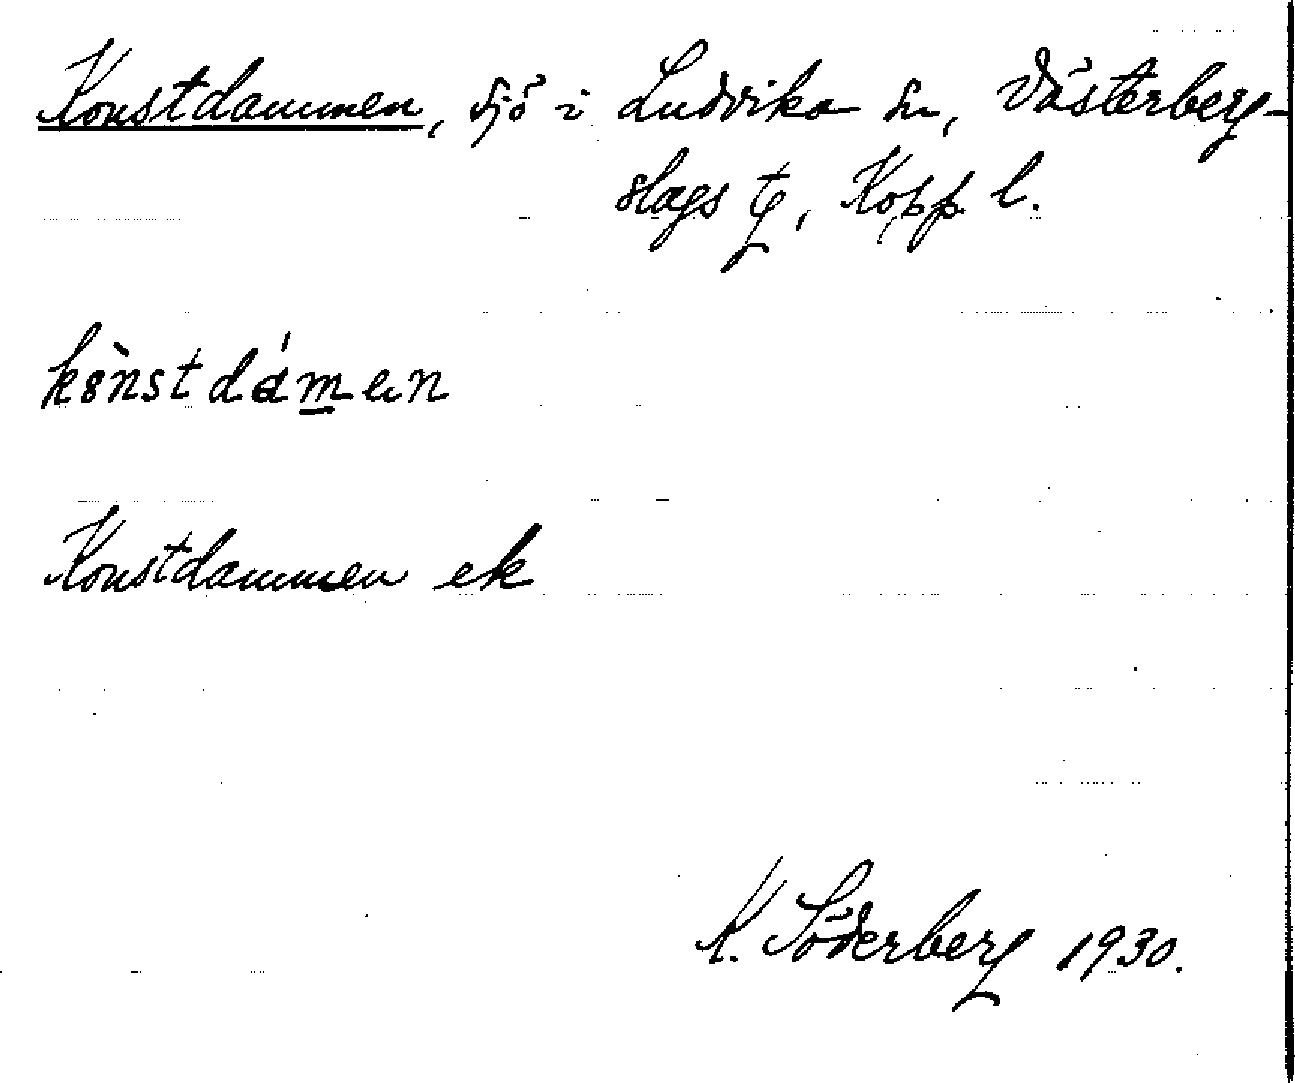 Konstdammen, sjö i Ludvika sn, Västerberg-
slags tg, Kopp. l.
kònstdámen
Konstdammen ek
K. Söderberg 1930.